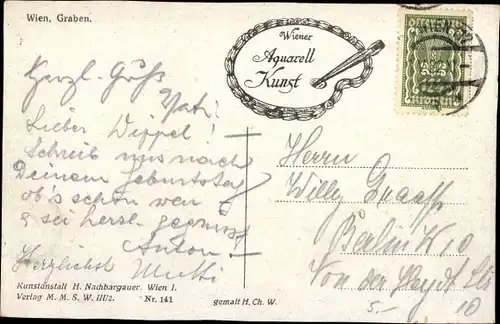 Wien, Graben.
Wiener
Aquarell
Kunst
Herzl. Gruß
Vati.
Lieber Wippel!
Schreib uns nach
Deinem Geburtstag
ob's schön war
& sei herzl. gegrüsst
Anton!
Herzlichst Mutti
Herrn
Willy
Berlin W 10
Von der Heydt Str
10
5.-
Kunstanstalt H. Nachbargauer. Wien I.
Verlag M. M. S. W. III/2. Nr. 141 gemalt H. Ch. W.